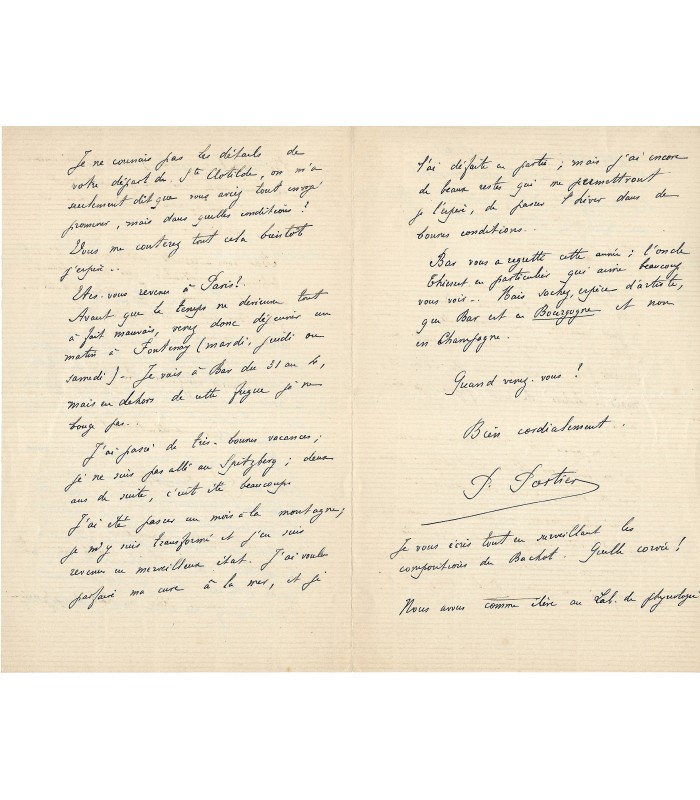 Je ne connais pas les détails de
votre départ de Ste Clotilde, on m'a
seulement dit que vous aviez tout envoyé
promener, mais dans quelles conditions !
Vous me conterez tout cela bientôt
j'espère..
Etes-vous revenu à Paris ?
Avant que le temps ne devienne tout
à fait mauvais, venez donc déjeuner un
matin à Fontenay (mardi, jeudi ou
samedi) -. Je vais à Bar du 31 au 4,
mais en dehors de cette fugue je ne
bouge pas..
J'ai passé de très-bonnes vacances ;
je ne suis pas allé au Spitzberg ; deux
ans de suite, c'eut été beaucoup
J'ai été passer un mois à la montagne,
je m'y suis transformé et j'en suis
revenu en merveilleux état. J'ai voulu
parfaire ma cure à la mer, et je
l'ai défaite en partie ; mais j'ai encore
de beaux restes qui me permettront
je l'espère, de passer l'hiver dans de
bonnes conditions..
Bar vous a regretté cette année ; l'oncle
en particulier qui aime beaucoup
vous voir.. Mais sachez, espèce d'artiste,
que Bar est en Bourgogne et non
en Champagne.
Quand venez-vous !
Bien cordialement.
P. Portier
Je vous écris tout en surveillant les
compositions du Bachot. Quelle corvée !
Nous avons comme élève au Lab. de physiologie